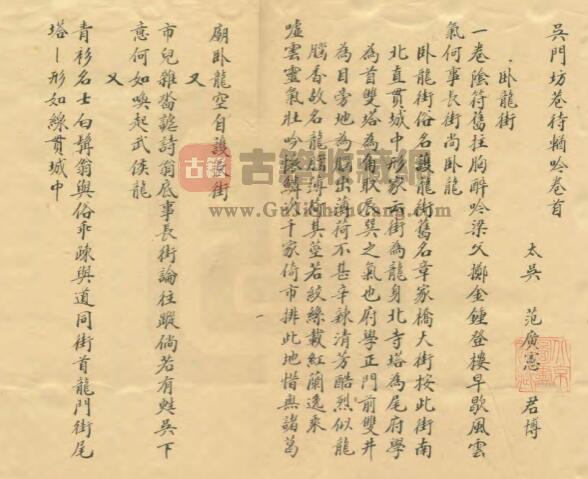 吳門坊巷待輶吟卷首
太吳 范廣憲 君博
臥龍街
一卷陰符舊拄胸醉吟梁父擲金鍾登樓早歇風雲
氣何事長街尚臥龍
臥龍街俗名護龍街舊名章家橋大街按此街南
北直貫城中形家云街為龍身北寺塔為尾府學
為首雙塔為角取辰巽之氣也府學正門前雙井
為目旁地為腦出薄荷不甚辛辣清芳酷烈似龍
腦香故名龍腦薄荷其莖若紋絲載紅蘭逸乘
噓雲靈氣壯吟 鱗次千家倚市排此地惜無諸葛
廟臥龍空自護 街
又
市兒雜沓誑詩翁底事長街論往蹤倘若有蛙吳下
意何如喚起武侯龍
又
青衫名士白髯翁與俗乖疎與道同街首龍門街尾
塔一形如線貫城中
古籍收藏网
www.GuJiShouCang.com